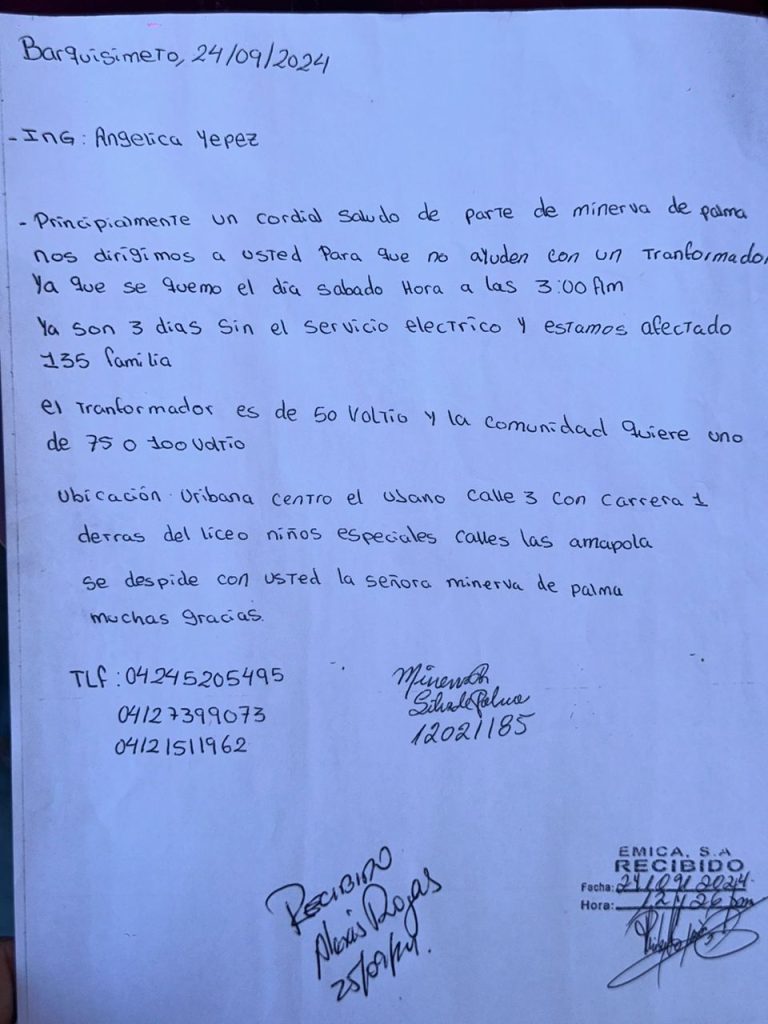 Barquisimeto, 24/09/2024
- ING: Angelica Yepez
- Principialmente un cordial saludo de parte de minerva de palma
nos dirigimos a usted Para que no ayuden con un Tranformador
Ya que se quemo el dia sabado Hora a las 3:00 Am
Ya son 3 dias sin el servicio electrico y estamos afectado
135 familia
el Tranformador es de 50 Voltio y la comunidad quiere uno
de 75 o 100 voltio
Ubicación Uribana centro el usano calle 3 con carrera 1
detras del liceo niños especiales calles las amapola
se despide con usted la señora minerva de palma
muchas gracias.
TLF: 04245205495
04127399073
04121511962
de Palma
12021185
RECIBIDO
Alexis Rojas
25/09/24.
EMICA, S.A
RECIBIDO
Fecha: 24/09/2024
Hora: 12:26 pm